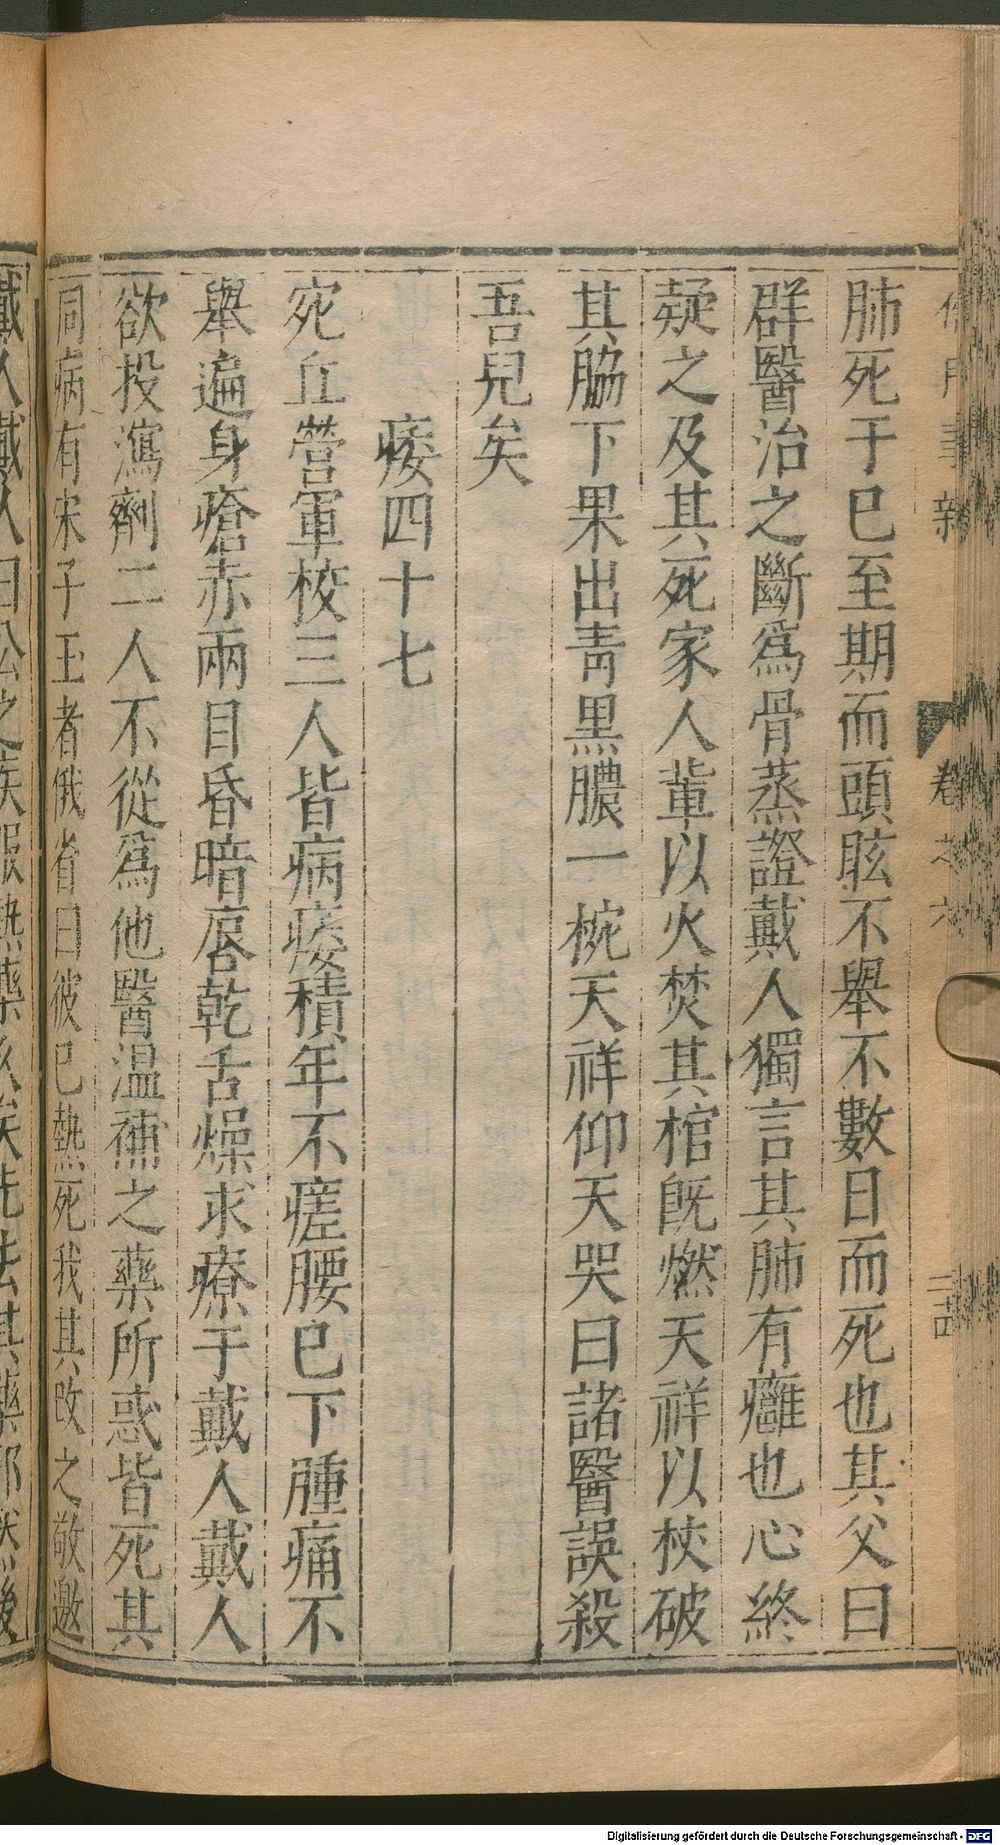 卷之六
肺死于巳至期而頭眩不舉不數日而死也其父曰
群醫治之斷爲骨蒸證戴人獨言其肺有癰也心終
疑之及其死家人輩以火焚其棺旣燃天祥以杖破
其脇下果出青黒膿一椀天祥仰天哭曰諸醫誤殺
吾兒矣
痿四十七
宛丘營軍校三人皆病痿積年不瘥腰巳下腫痛不
舉遍身瘡赤兩目昏暗唇乾舌燥求療于戴人戴人
欲投瀉劑二人不從爲他醫温補之藥所惑皆死其
同病有宋子玉者俄省曰彼巳熱死我其改之敬邀
戴人戴人曰公之疾服熱藥矣先去其藥邪然後
Digitalisierung gefördert durch die Deutsche Forschungsgemeinschaft - DFG